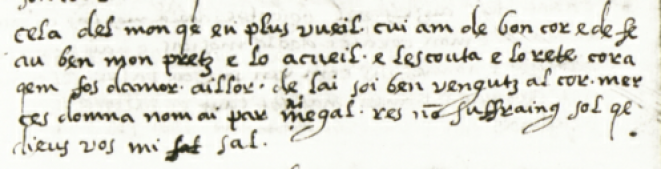 cela del mon qe eu plus vueil. cui am de bon cor e de fe
au ben mon pretz e lo acueil. e lescouta e lo rete cora
qem fos damor. aillor. de lai soi ben vengutz al cor. mer
ces domna nom ai par megal. res nō suffraing sol qe
dieus vos mi sal.